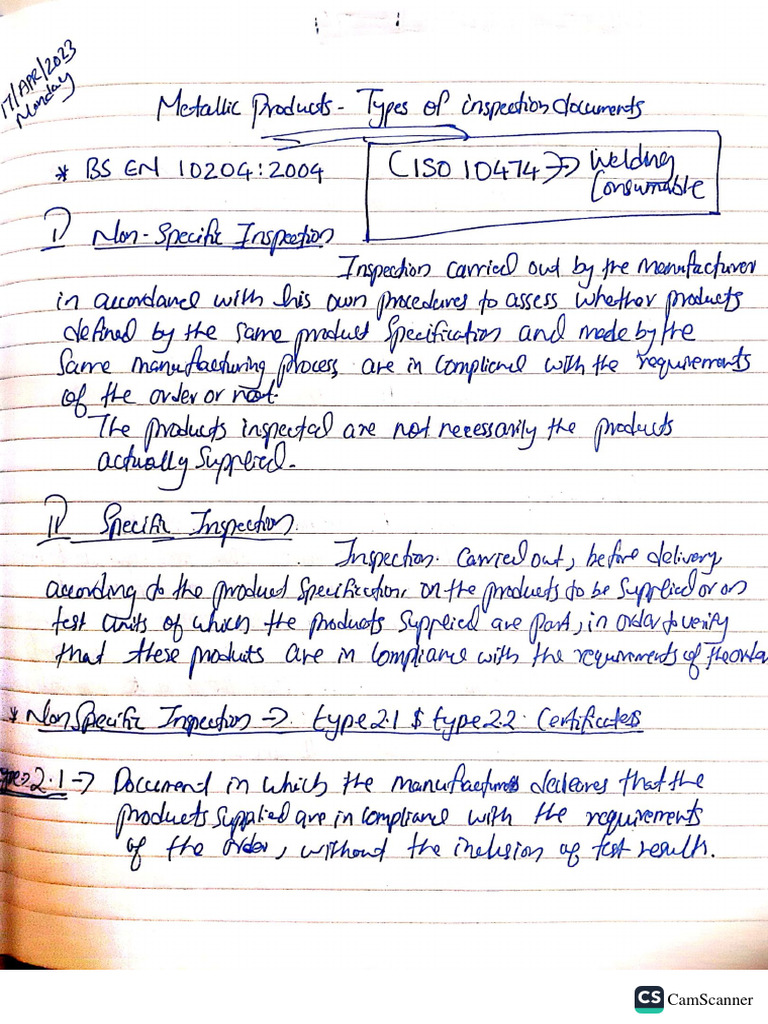 17/APR/2023
Monday
Metallic Products - Types of inspection documents
* BS EN 10204:2004
(ISO 10474 => Welding
Consumable
I) Non-Specific Inspection
Inspection carried out by the manufacturer
in accordance with his own procedures to assess whether products
defined by the same product specification and made by the
same manufacturing process, are in compliance with the requirements
of the order or not.
The products inspected are not necessarily the products
actually supplied.
II) Specific Inspection
Inspection carried out, before delivery
according to the product specification, on the products to be supplied or on
test units of which the products supplied are part, in order to verify
that these products are in compliance with the requirements of the order
* Non Specific Inspection => type 2.1 & type 2.2 Certificates
Type 2.1 => Document in which the manufacturer declares that the
products supplied are in compliance with the requirements
of the order, without the inclusion of test results.
CS CamScanner